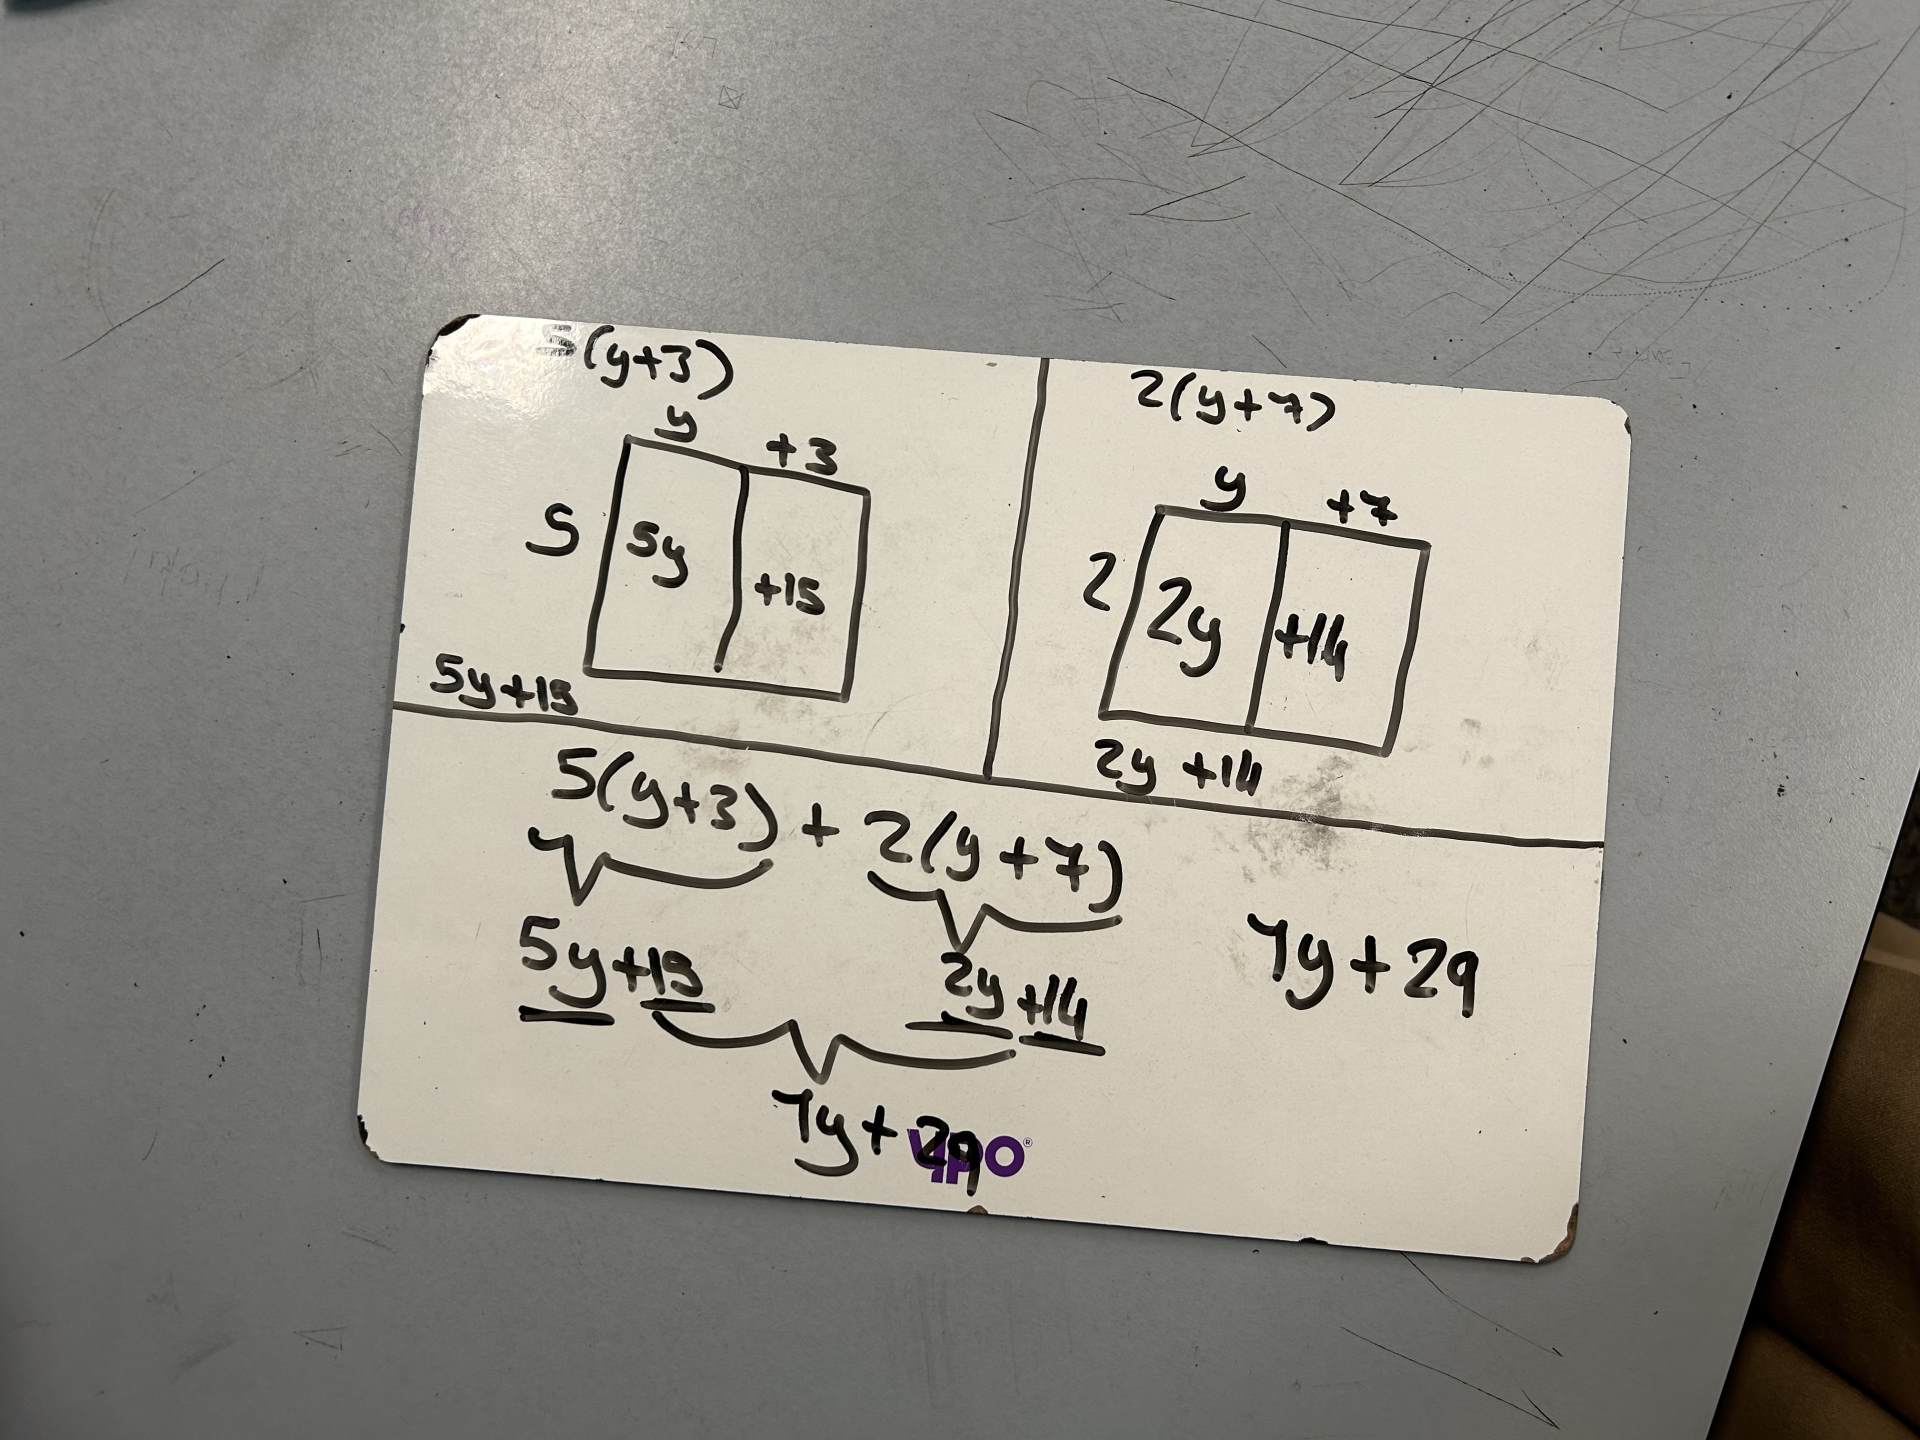 5(y+3)
y +3
5 5y +15
5y+15
2(y+7)
y +7
2 2y +14
2y +14
5(y+3) + 2(y+7)
5y+15 2y+14
7y+29
7y+29